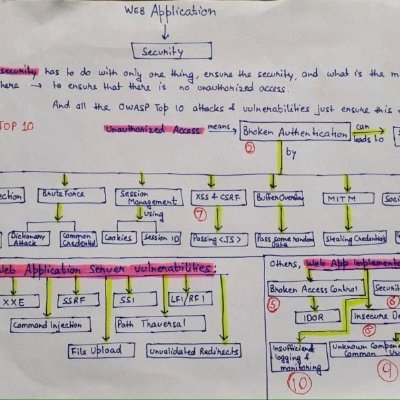 WEB Application
Security
security has to do with only one thing, ensure the security, and what is the m
here → to ensure that there is no unauthorized access.
And all the OWASP Top 10 attacks & vulnerabilities just ensure this
TOP 10
Unauthorized Access means Broken Authentication can leads to
② by
ection
Brute Force
Session Management
XSS & CSRF
Buffer Overflow
MITM
Soci
using
⑦
Dictionary Attack
Common Credential
Cookies
Session ID
Passing <JS>
Pass some random data
Stealing Credentials
Web Application Server vulnerabilities:
Others, Web App Implement
XXE
SSRF
SSI
LFI/RFI
Broken Access Control
Securit
⑤
⑥
Command Injection
Path Traversal
IDOR
Insecure De
⑧
File Upload
Unvalidated Redirects
Insufficient logging & monitoring
Unknown Compone
Common Vu
⑩
⑨